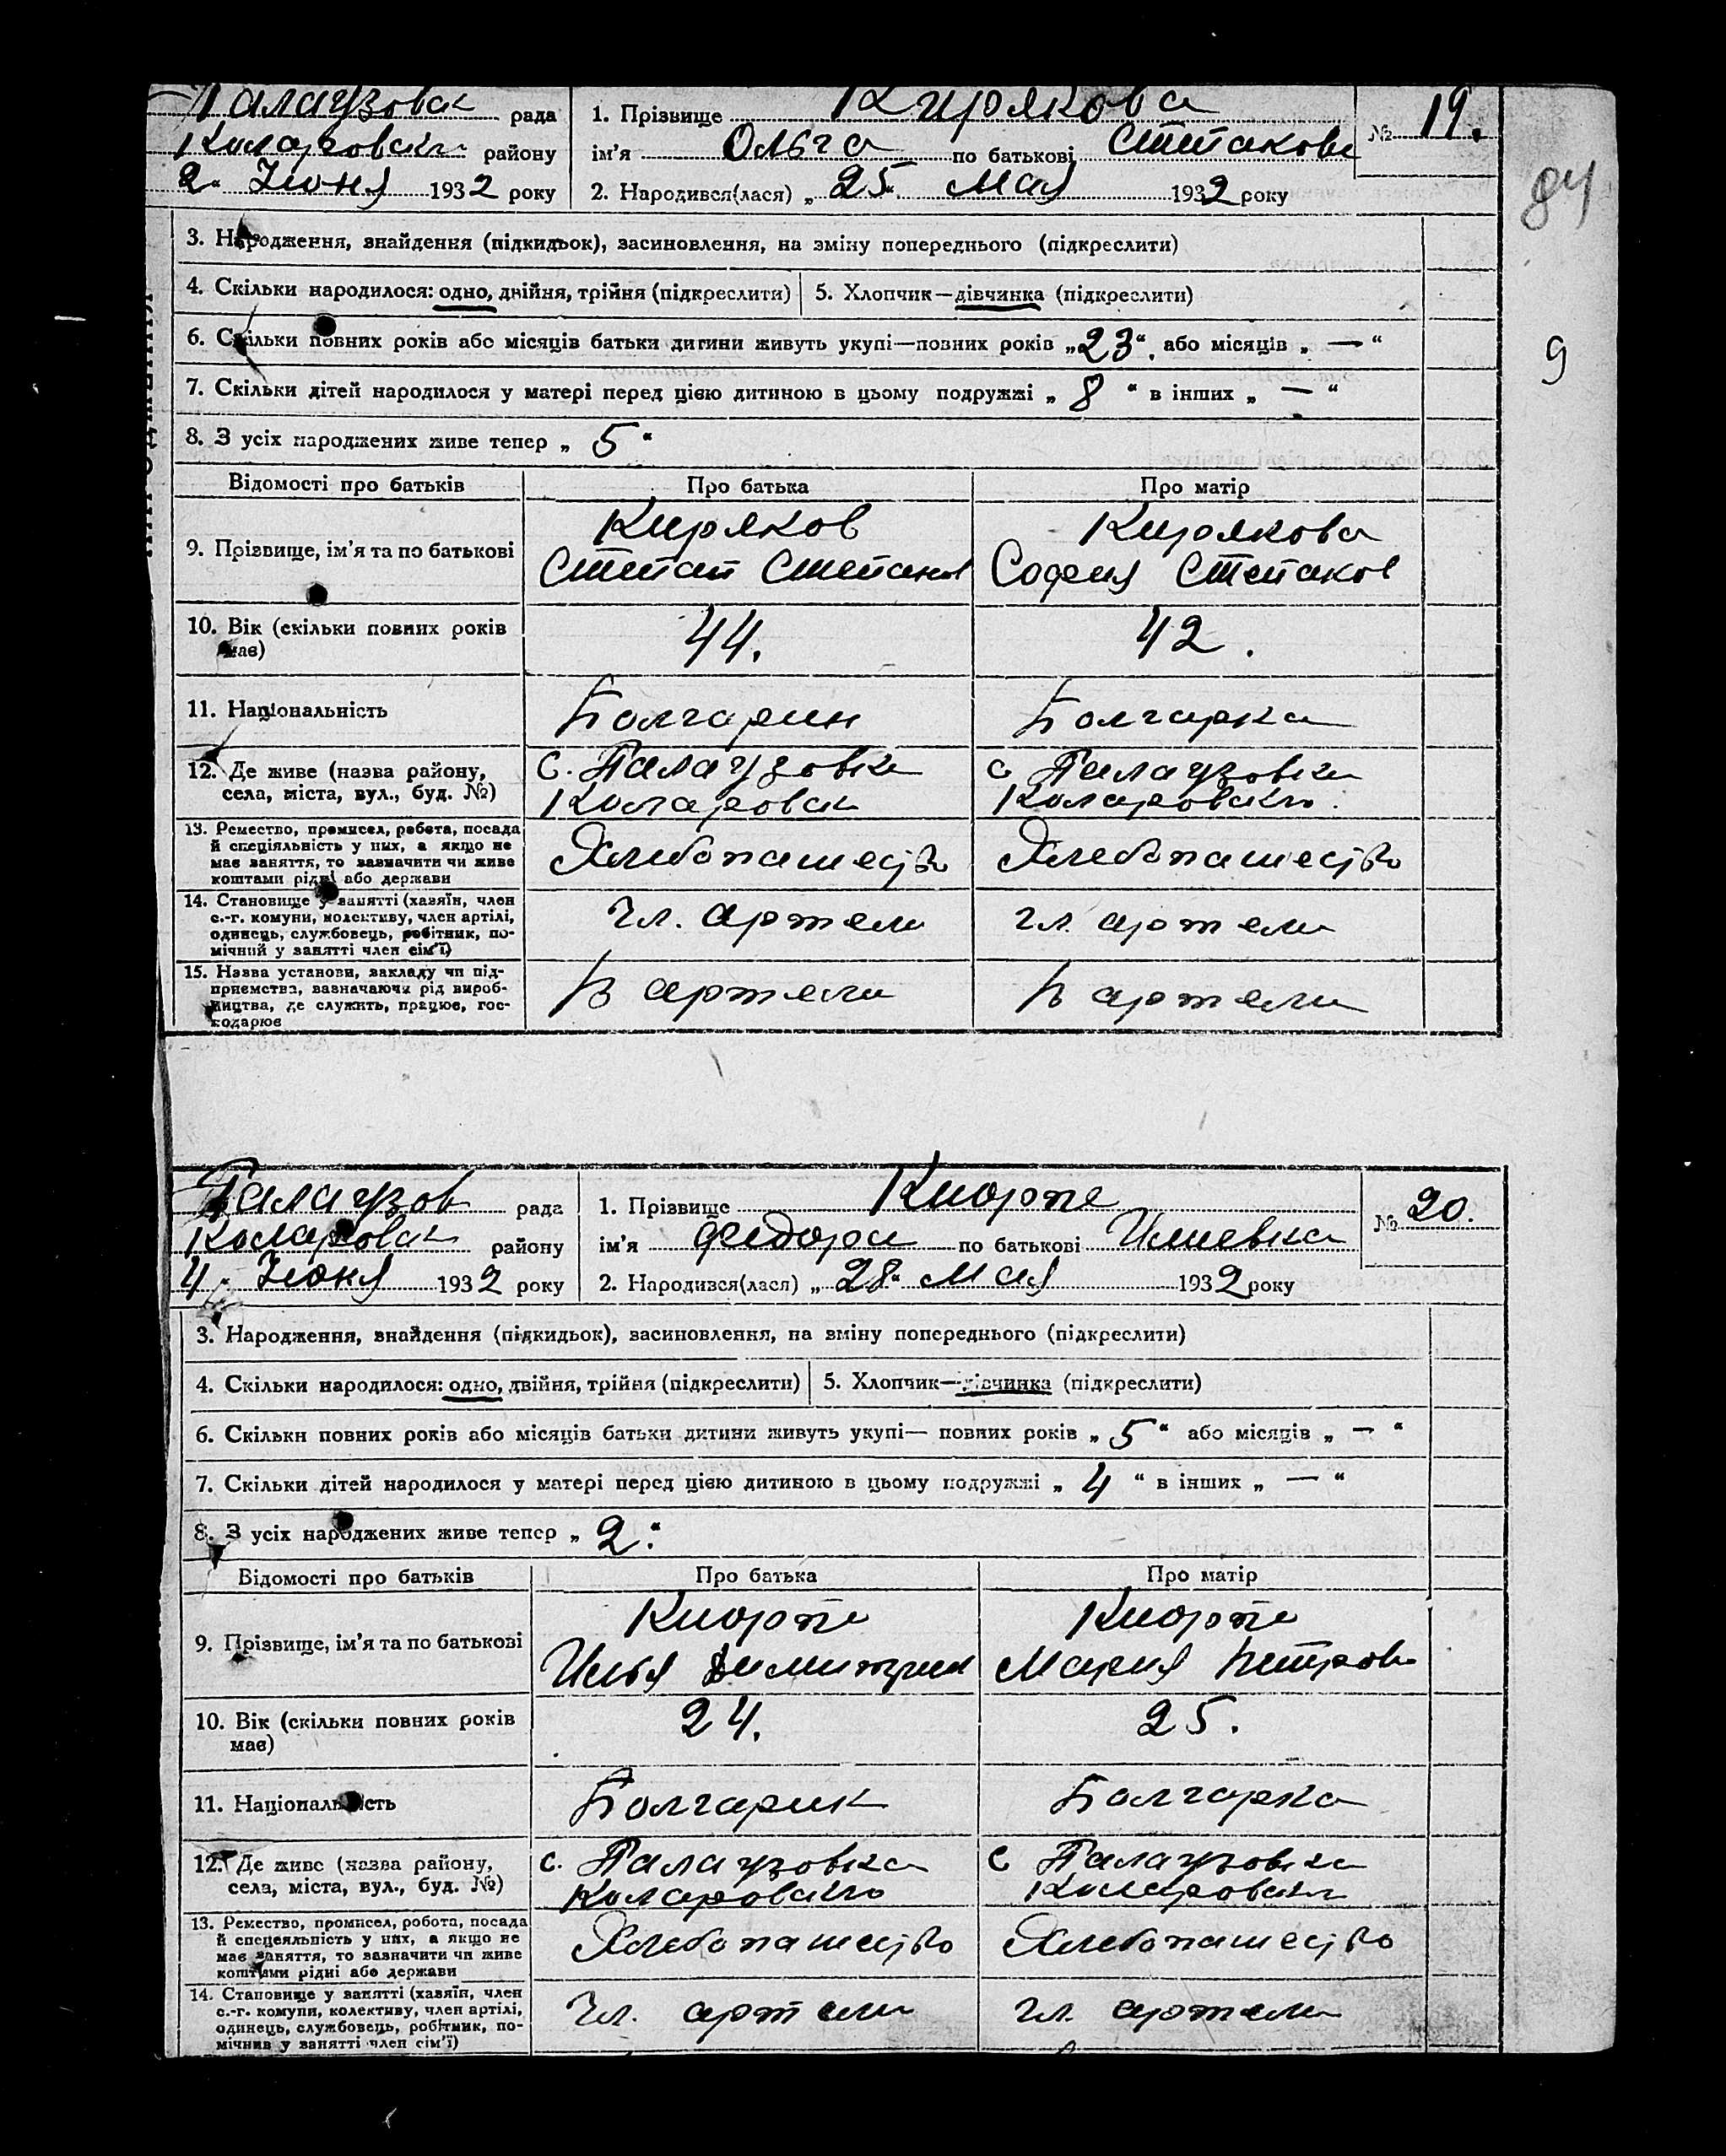 Палаузовск рада
Коларовськ району
2 Июня 1932 року
1. Прізвище Кирякова
ім'я Ольга по батькові Степанова
2. Народився(лася) „ 25 “ Мая 1932 року
№ 19.
84
3. Народження, знайдення (підкидьок), засиновлення, на зміну попереднього (підкреслити)
4. Скільки народилося: одно, двійня, трійня (підкреслити)
5. Хлопчик—дівчинка (підкреслити)
6. Скільки повних років або місяців батьки дитини живуть укупі—повних років „23“, або місяців „ — “
9
7. Скільки дітей народилося у матері перед цією дитиною в цьому подружжі „ 8 “ в інших „ — “
8. З усіх народжених живе тепер „ 5 “
Відомості про батьків
Про батька
Про матір
9. Прізвище, ім'я та по батькові
Киряков
Степан Степанов
Кирякова
София Степанов
10. Вік (скільки повних років
має)
44.
42.
11. Національність
Болгарин
Болгарка
12. Де живе (назва району,
села, міста, вул., буд. №)
с. Палаузовка
Коларовск
с Палаузовка
Коларовского
13. Ремество, промисел, робота, посада
й спеціяльність у них, а якщо не
має заняття, то зазначити чи живе
коштами рідні або держави
Хлебопашество
Хлебопашество
14. Становище у занятті (хазяїн, член
с.-г. комуни, колективу, член артілі,
одинець, службовець, робітник, по-
мічний у занятті член сім'ї)
Чл. артели
чл. артели
15. Назва установи, закладу чи під-
приємства, зазначаючи рід вироб-
ництва, де служить, працює, гос-
подарює
В артели
В артели
Палаузов рада
Коларовск району
4. Июня 1932 року
1. Прізвище Киорпе
ім'я Федора по батькові Ильевна
2. Народився(лася) „ 28 “ Мая 1932 року
№ 20.
3. Народження, знайдення (підкидьок), засиновлення, на зміну попереднього (підкреслити)
4. Скільки народилося: одно, двійня, трійня (підкреслити)
5. Хлопчик—дівчинка (підкреслити)
6. Скільки повних років або місяців батьки дитини живуть укупі— повних років „ 5 “ або місяців „ — “
7. Скільки дітей народилося у матері перед цією дитиною в цьому подружжі „ 4 “ в інших „ — “
8. З усіх народжених живе тепер „ 2. “
Відомості про батьків
Про батька
Про матір
9. Прізвище, ім'я та по батькові
Киорпе
Илья Димитрии
Киорпе
Мария Петров
10. Вік (скільки повних років
має)
24.
25.
11. Національність
Болгарин
Болгарка
12. Де живе (назва району,
села, міста, вул., буд. №)
с. Палаузовка
Коларовского
с Палаузовка
Коларовского
13. Ремество, промисел, робота, посада
й спецеяльність у них, а якщо не
має заняття, то зазначити чи живе
коштами рідні або держави
Хлебопашество
Хлебопашество
14. Становище у занятті (хазяїн, член
с.-г. комуни, колективу, член артілі,
одинець, службовець, робітник, по-
мічний у занятті член сім'ї)
Чл. артели
чл. артели